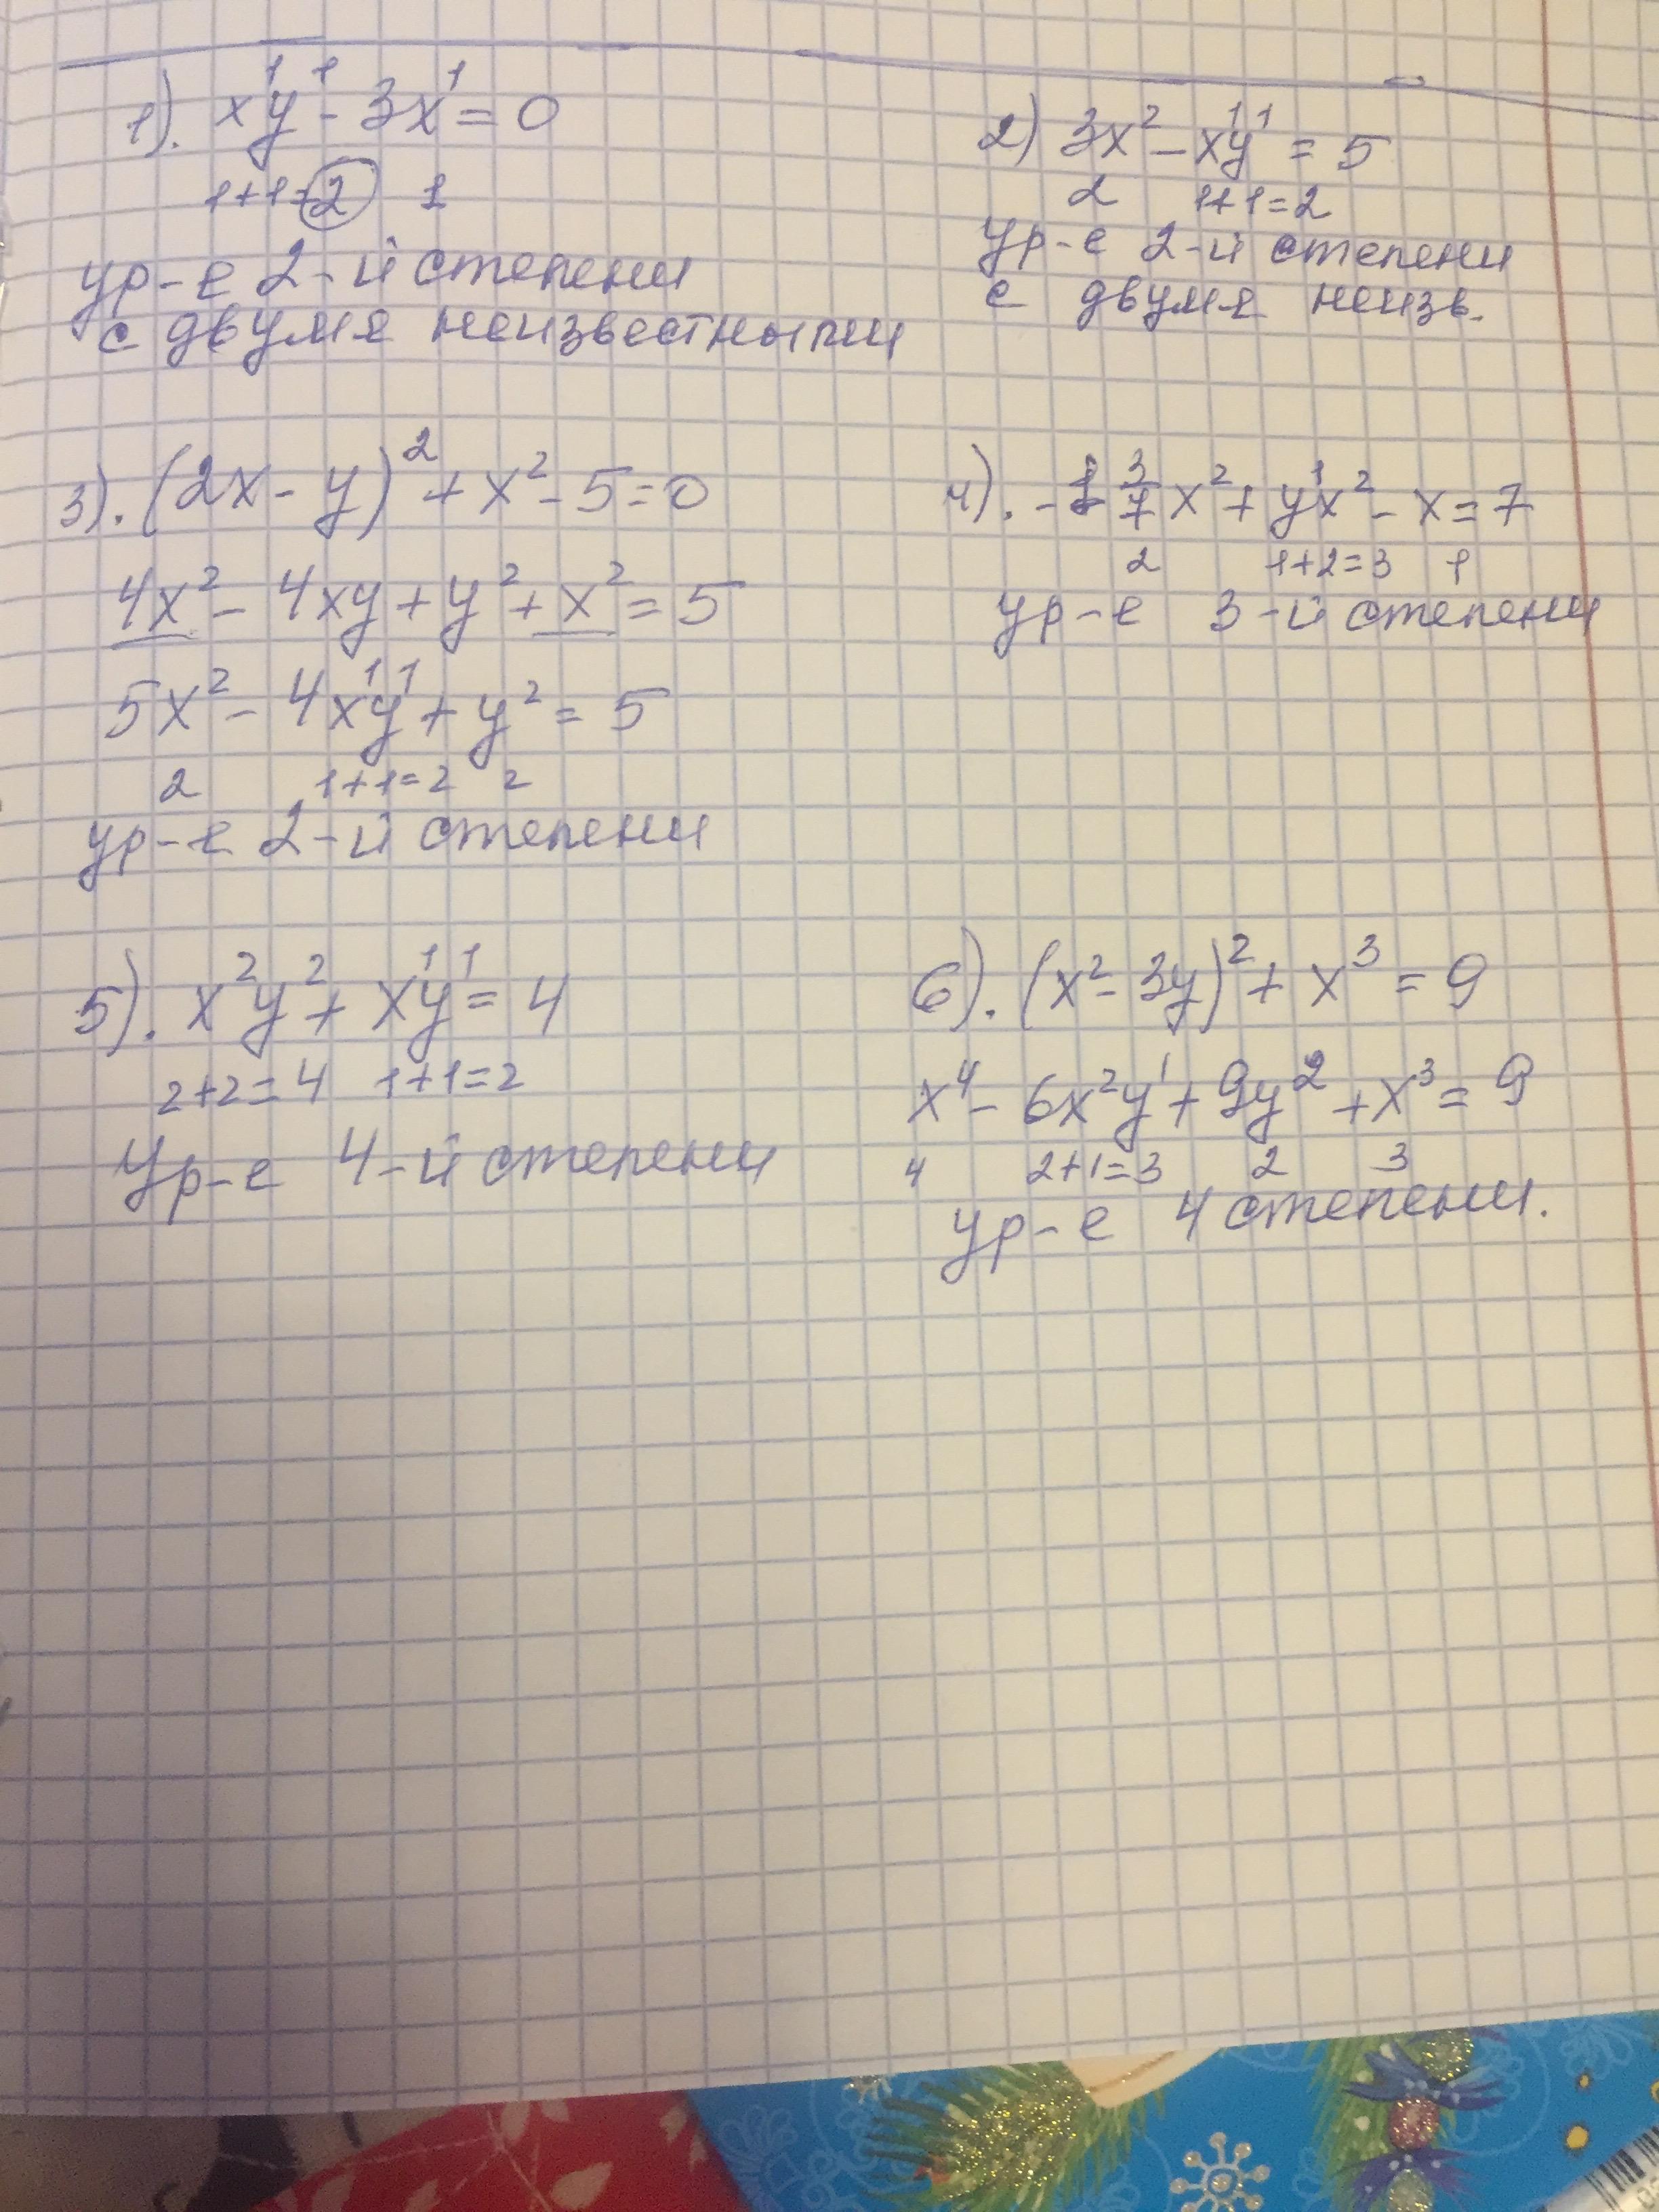 1). x¹y¹ - 3x¹ = 0
1+1=2 1
ур-е 2-й степени
с двумя неизвестными
2) 3x² - x¹y¹ = 5
2 1+1=2
ур-е 2-й степени
с двумя неизв.
3). (2x - y)² + x² - 5 = 0
4x² - 4xy + y² + x² = 5
5x² - 4x¹y¹ + y² = 5
2 1+1=2 2
ур-е 2-й степени
4). - 3/7 x² + y¹x² - x = 7
2 1+2=3 1
ур-е 3-й степени
5). x²y² + x¹y¹ = 4
2+2=4 1+1=2
Ур-е 4-й степени
6). (x² - 3y)² + x³ = 9
x⁴ - 6x²y¹ + 9y² + x³ = 9
4 2+1=3 2 3
ур-е 4 степени.